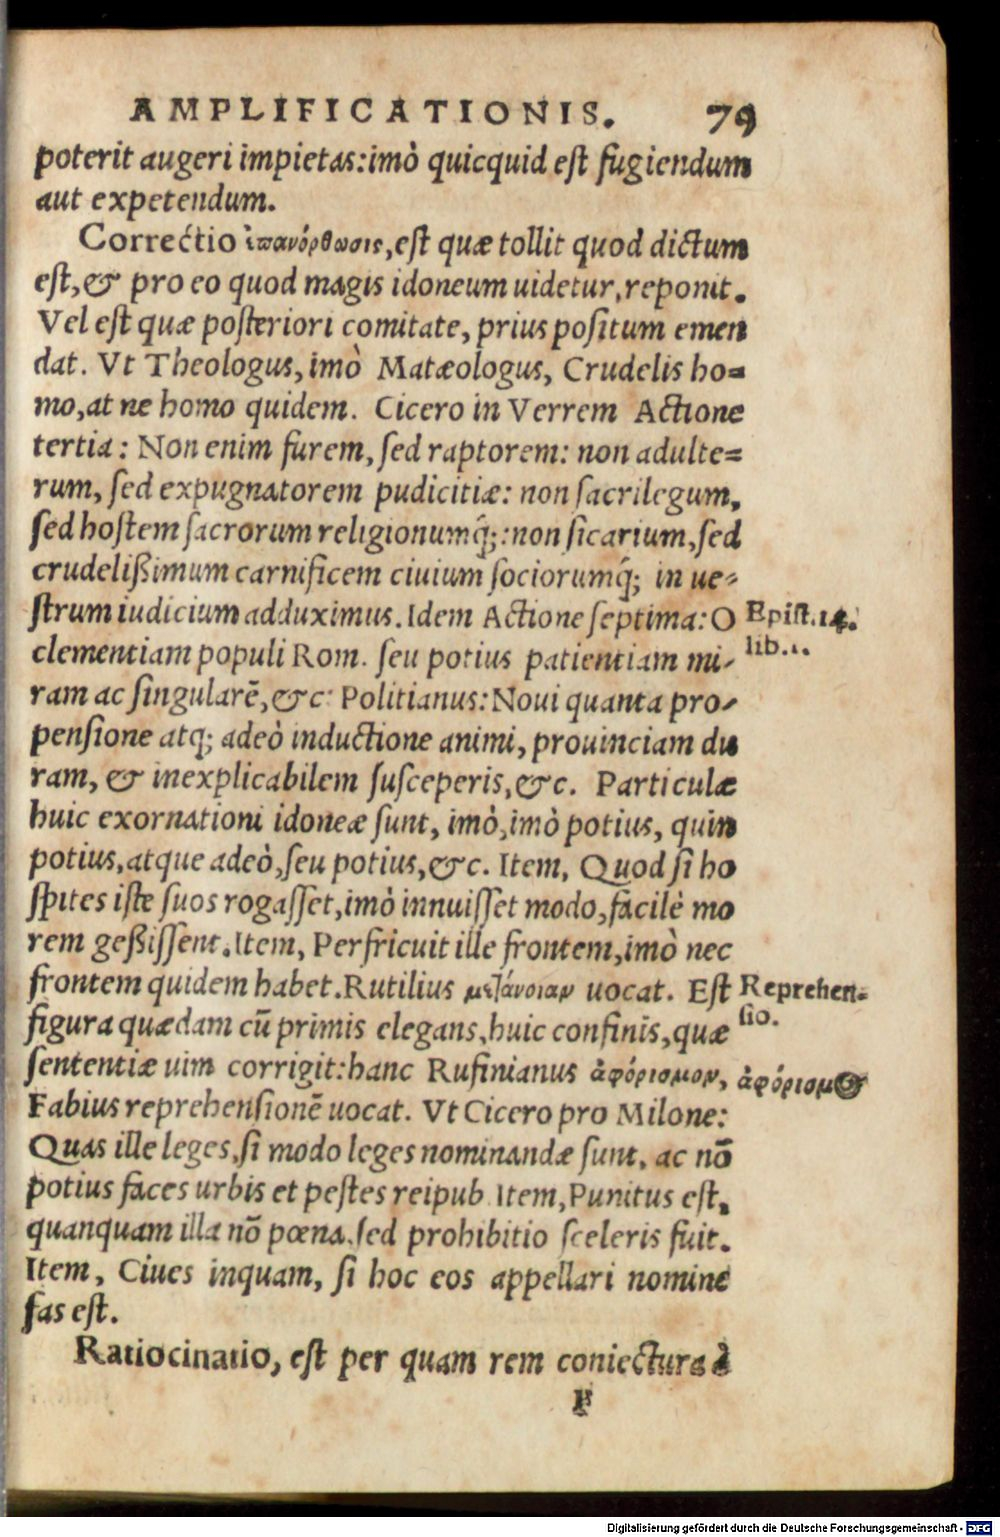 AMPLIFICATIONIS. 79
poterit augeri impietas: imò quicquid est fugiendum
aut expetendum.
Correctio ἐπανόρθωσις, est quæ tollit quod dictum
est, & pro eo quod magis idoneum uidetur, reponit.
Vel est quæ posteriori comitate, prius positum emen
dat. Vt Theologus, imò Matæologus, Crudelis ho=
mo, at ne homo quidem. Cicero in Verrem Actione
tertia: Non enim furem, sed raptorem: non adulte=
rum, sed expugnatorem pudicitiæ: non sacrilegum,
sed hostem sacrorum religionumq́;: non sicarium, sed
crudelißimum carnificem ciuium sociorumq́; in ue-
strum iudicium adduximus. Idem Actione septima: O
Epist. 14.
clementiam populi Rom. seu potius patientiam mi-
lib. 1.
ram ac singularē, &c. Politianus: Noui quanta pro-
pensione atq; adeò inductione animi, prouinciam du
ram, & inexplicabilem susceperis, &c. Particulæ
huic exornationi idoneæ sunt, imò, imò potius, quin
potius, atque adeò, seu potius, &c. Item, Quod si ho
spites iste suos rogasset, imò innuisset modo, facilè mo
rem geßissent. Item, Perfricuit ille frontem, imò nec
frontem quidem habet. Rutilius μετάνοιαν uocat. Est
Reprehen-
figura quædam cū primis elegans, huic confinis, quæ
sio.
sententiæ uim corrigit: hanc Rufinianus ἀφόρισμον,
ἀφόρισμος
Fabius reprehensionē uocat. Vt Cicero pro Milone:
Quas ille leges, si modo leges nominandæ sunt, ac nō
potius faces urbis et pestes reipub. Item, Punitus est,
quanquam illa nō pœna, sed prohibitio sceleris fuit.
Item, Ciues inquam, si hoc eos appellari nomine
fas est.
Ratiocinatio, est per quam rem coniectura à
F
Digitalisierung gefördert durch die Deutsche Forschungsgemeinschaft - DFG